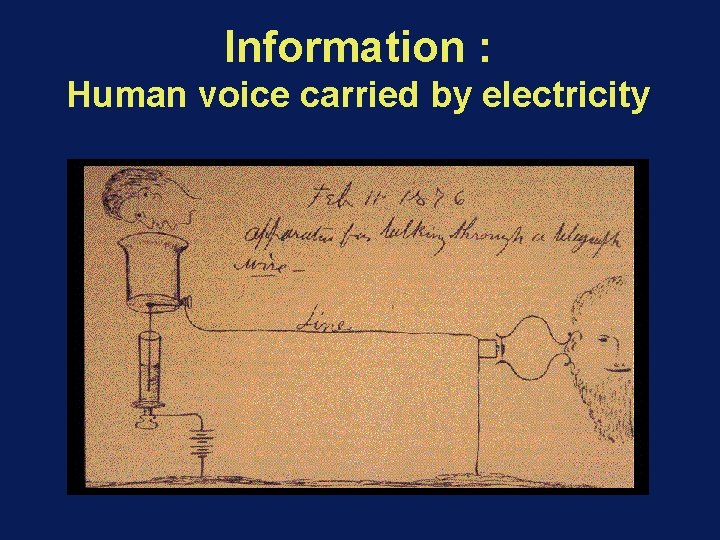 Information :
Human voice carried by electricity
Feb 11 1876
apparatus for talking through a telegraph
wire –
Line